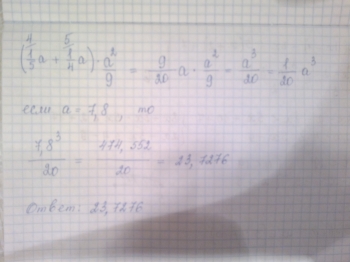 4 5
(1/5 a + 1/4 a) · a²/9 = 9/20 a · a²/9 = a³/20 = 1/20 a³
если a = 7,8 , то
7,8³/20 = 474,552/20 = 23,7276
Ответ: 23,7276